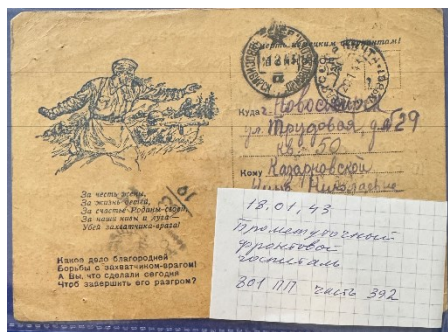 Смерть немецким оккупантам!
Куда г. Новосибирск
ул. Трудовая, д № 29
кв. 50
Кому Казарновской
Нине Николаевне
За честь жены,
За жизнь детей,
За счастье Родины своей,
За наши нивы и луга—
Убей захватчика-врага!
Какое дело благородней
Борьбы с захватчиком-врагом!
А Вы, что сделали сегодня
Чтоб завершить его разгром?
10
18.01.43
Промежуточный
фронтовой
госпиталь
801 ПП часть 392